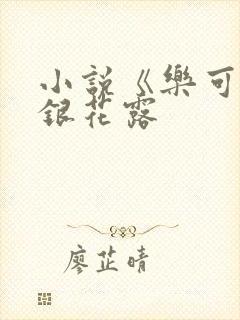 小説《樂可
銀花露
廖芷晴